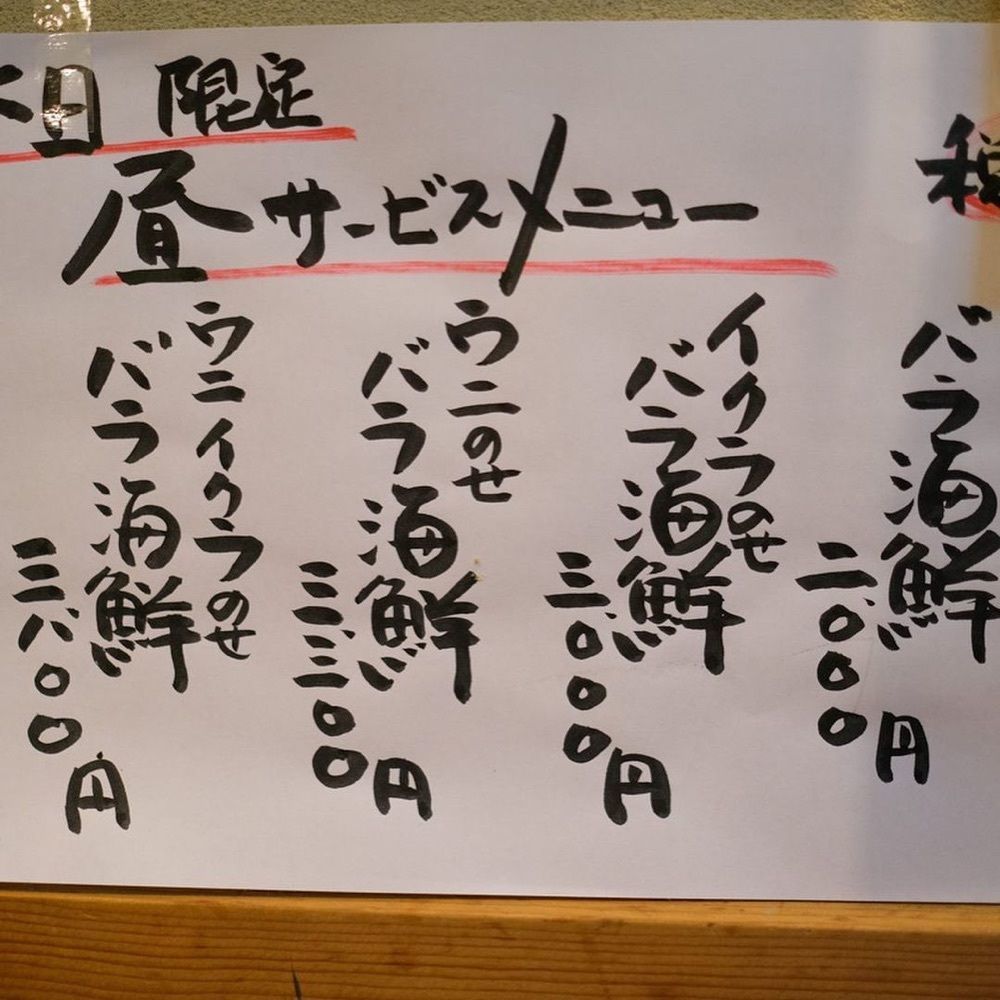 日 限定
昼サービスメニュー
税
バラ海鮮
二、〇〇〇円
イクラのせ
バラ海鮮
三、〇〇〇円
ウニのせ
バラ海鮮
三、三〇〇円
ウニイクラのせ
バラ海鮮
三、八〇〇円